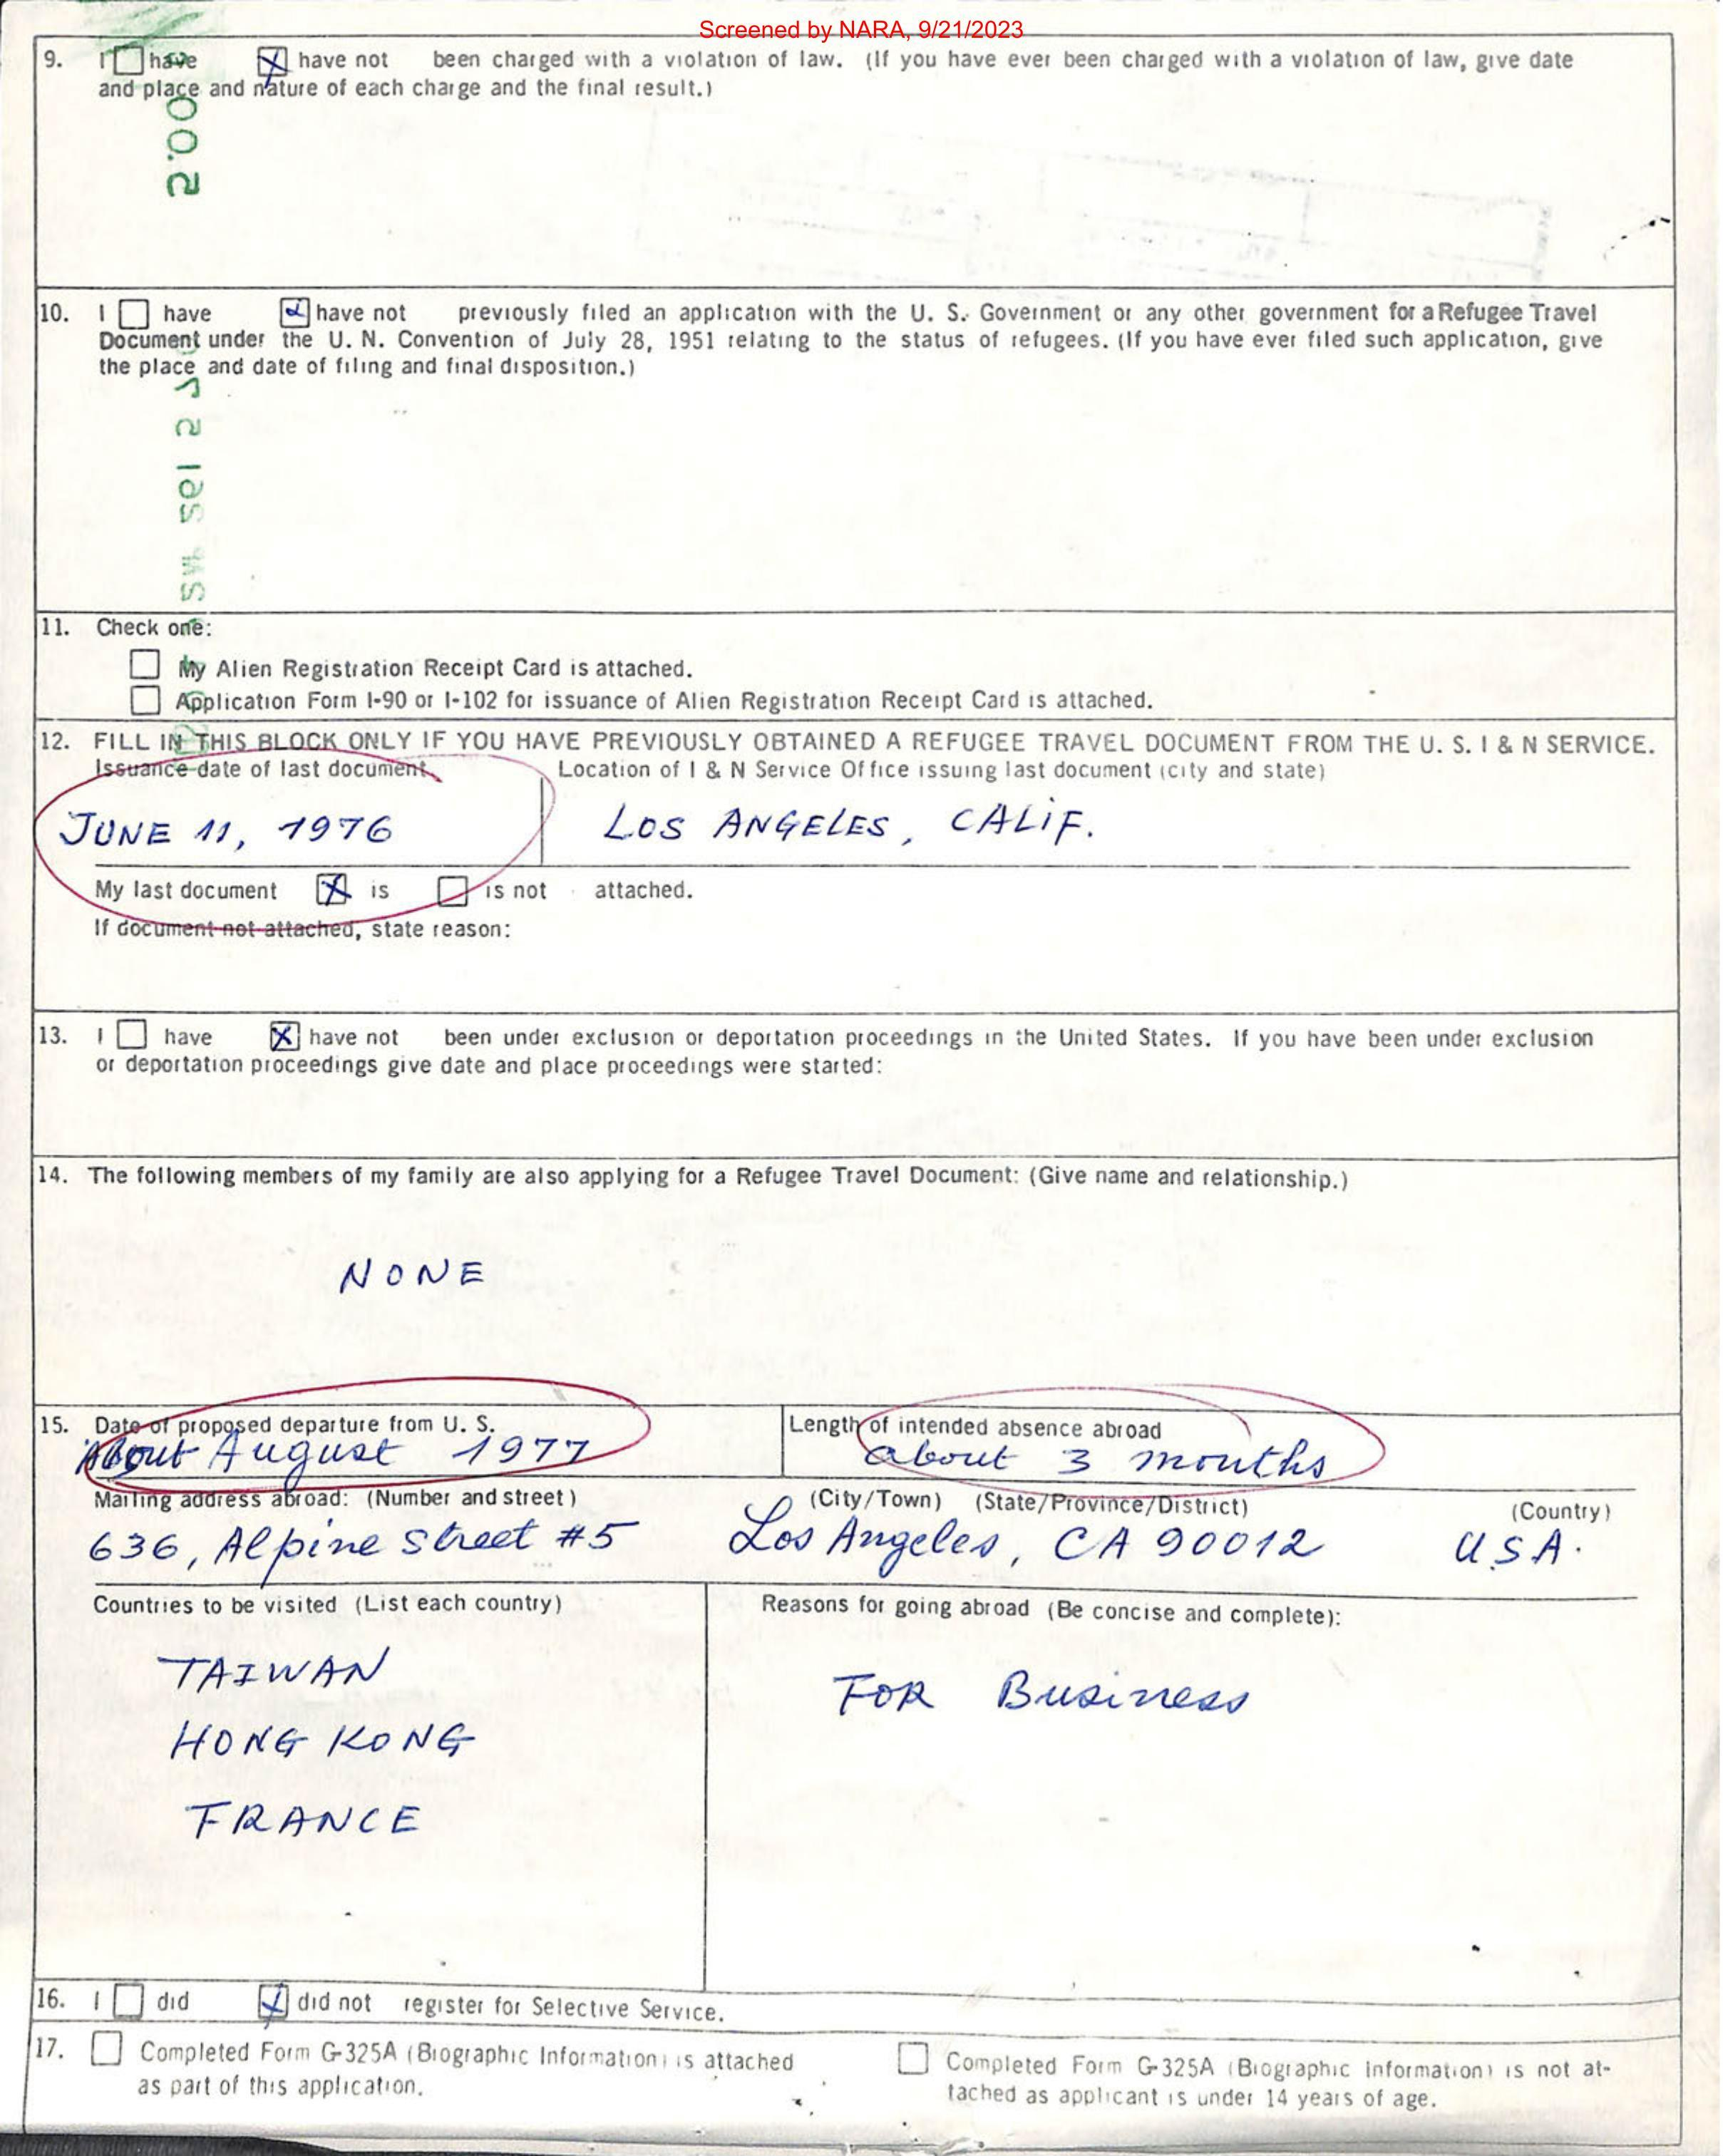 Screened by NARA, 9/21/2023
9. I have have not been charged with a violation of law. (If you have ever been charged with a violation of law, give date
and place and nature of each charge and the final result.)
10. I have have not previously filed an application with the U. S. Government or any other government for a Refugee Travel
Document under the U. N. Convention of July 28, 1951 relating to the status of refugees. (If you have ever filed such application, give
the place and date of filing and final disposition.)
11. Check one:
My Alien Registration Receipt Card is attached.
Application Form I-90 or I-102 for issuance of Alien Registration Receipt Card is attached.
12. FILL IN THIS BLOCK ONLY IF YOU HAVE PREVIOUSLY OBTAINED A REFUGEE TRAVEL DOCUMENT FROM THE U. S. I & N SERVICE.
Issuance date of last document Location of I & N Service Office issuing last document (city and state)
JUNE 11, 1976 LOS ANGELES, CALIF.
My last document X is is not attached.
If document not attached, state reason:
13. I have X have not been under exclusion or deportation proceedings in the United States. If you have been under exclusion
or deportation proceedings give date and place proceedings were started:
14. The following members of my family are also applying for a Refugee Travel Document: (Give name and relationship.)
NONE
15. Date of proposed departure from U. S. Length of intended absence abroad
About August 1977 about 3 months
Mailing address abroad: (Number and street) (City/Town) (State/Province/District) (Country)
636, Alpine Street #5 Los Angeles, CA 90012 U.S.A.
Countries to be visited (List each country) Reasons for going abroad (Be concise and complete):
TAIWAN
FOR Business
HONG KONG
FRANCE
16. I did did not register for Selective Service.
17. Completed Form G-325A (Biographic Information) is attached Completed Form G-325A (Biographic Information) is not at-
as part of this application. tached as applicant is under 14 years of age.